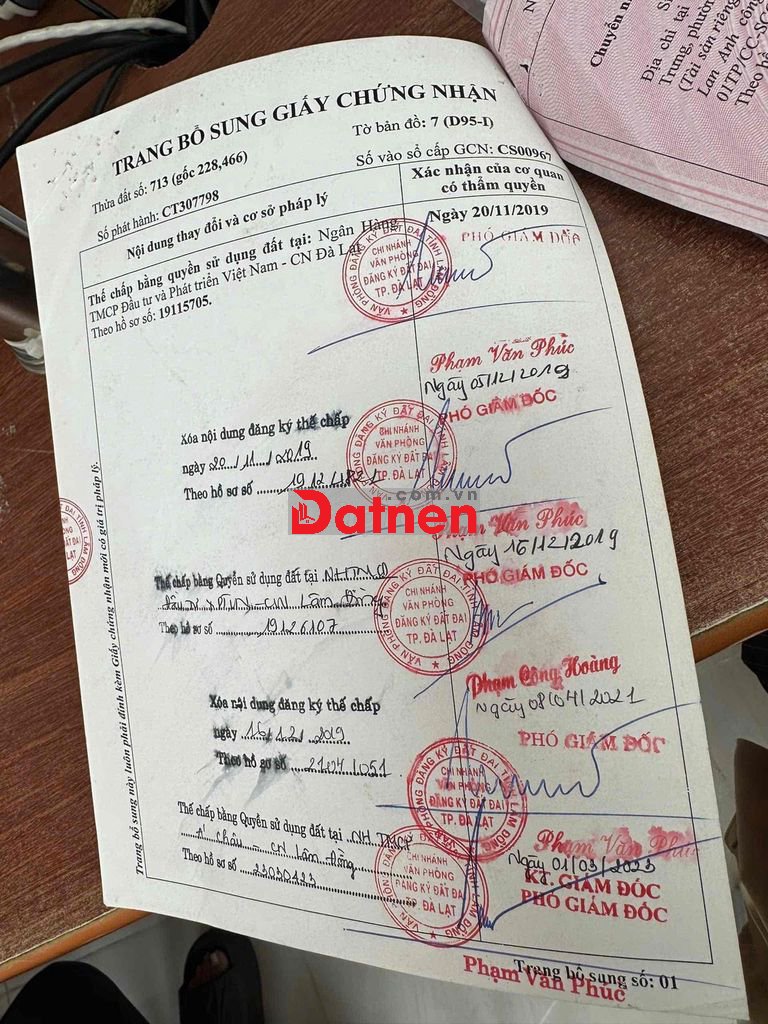 TRANG BỔ SUNG GIẤY CHỨNG NHẬN
Thửa đất số: 713 (gốc 228,466)
Tờ bản đồ: 7 (D95-I)
Số phát hành: CT307798
Số vào sổ cấp GCN: CS00967
Nội dung thay đổi và cơ sở pháp lý
Xác nhận của cơ quan
có thẩm quyền
Thế chấp bằng quyền sử dụng đất tại: Ngân Hàng
TMCP Đầu tư và Phát triển Việt Nam - CN Đà Lạt
Theo hồ sơ số: 19115705.
Ngày 20/11/2019
PHÓ GIÁM ĐỐC
VĂN PHÒNG ĐĂNG KÝ ĐẤT ĐAI TỈNH LÂM ĐỒNG
CHI NHÁNH
VĂN PHÒNG
ĐĂNG KÝ ĐẤT ĐAI
TP. ĐÀ LẠT
Phạm Văn Phúc
Xóa nội dung đăng ký thế chấp
ngày 20/11/2019
Theo hồ sơ số
Ngày 05/12/2019
PHÓ GIÁM ĐỐC
VĂN PHÒNG ĐĂNG KÝ ĐẤT ĐAI TỈNH LÂM ĐỒNG
CHI NHÁNH
VĂN PHÒNG
ĐĂNG KÝ ĐẤT ĐAI
TP. ĐÀ LẠT
Phạm Văn Phúc
Datnen
.com.vn
Thế chấp bằng Quyền sử dụng đất tại NHTMCP
CN Lâm Đồng
Theo hồ sơ số 19126107
Ngày 16/12/2019
PHÓ GIÁM ĐỐC
VĂN PHÒNG ĐĂNG KÝ ĐẤT ĐAI TỈNH LÂM ĐỒNG
CHI NHÁNH
VĂN PHÒNG
ĐĂNG KÝ ĐẤT ĐAI
TP. ĐÀ LẠT
Phạm Công Hoàng
Xóa nội dung đăng ký thế chấp
ngày 16/12/2019
Theo hồ sơ số 21041051
Ngày 08/04/2021
PHÓ GIÁM ĐỐC
VĂN PHÒNG ĐĂNG KÝ ĐẤT ĐAI TỈNH LÂM ĐỒNG
CHI NHÁNH
VĂN PHÒNG
ĐĂNG KÝ ĐẤT ĐAI
TP. ĐÀ LẠT
Phạm Văn Phúc
Thế chấp bằng Quyền sử dụng đất tại NH TMCP
Á Châu - CN Lâm Đồng
Theo hồ sơ số 23030423
Ngày 01/03/2023
KT. GIÁM ĐỐC
PHÓ GIÁM ĐỐC
CHI NHÁNH
VĂN PHÒNG
ĐĂNG KÝ ĐẤT ĐAI
TP. ĐÀ LẠT
Phạm Văn Phúc
Trang bổ sung số: 01
Trang bổ sung này luôn phải đính kèm Giấy chứng nhận mới có giá trị pháp lý.
Chuyển
Địa chỉ tại
Trung, phường
(Tài sản riêng
Lan Anh công
01TP/CC-SC
Theo hồ